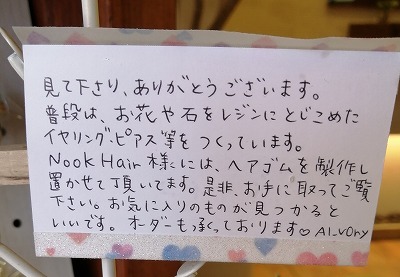 見て下さり、ありがとうございます。
普段は、お花や石をレジンにとじこめた
イヤリング・ピアス等をつくっています。
Nook Hair 様には、ヘアゴムを製作し
置かせて頂いてます。是非、お手に取ってご覧
下さい。お気に入りのものが見つかると
いいです。オーダーも承っております♡ AI_VOry